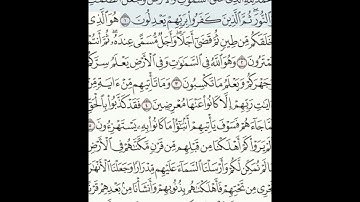 النُّورَ ثُمَّ الَّذِينَ كَفَرُوا۟ بِرَبِّهِمْ يَعْدِلُونَ ۝ هُوَ الَّذِى
خَلَقَكُم مِّن طِينٍ ثُمَّ قَضَىٰٓ أَجَلًا وَأَجَلٌ مُّسَمًّى عِندَهُۥ ثُمَّ أَنتُمْ
تَمْتَرُونَ ۝ وَهُوَ اللَّهُ فِى السَّمَٰوَٰتِ وَفِى الْأَرْضِ يَعْلَمُ سِرَّكُمْ
وَجَهْرَكُمْ وَيَعْلَمُ مَا تَكْسِبُونَ ۝ وَمَا تَأْتِيهِم مِّنْ ءَايَةٍ مِّنْ
ءَايَٰتِ رَبِّهِمْ إِلَّا كَانُوا۟ عَنْهَا مُعْرِضِينَ ۝ فَقَدْ كَذَّبُوا۟ بِالْحَقِّ
لَمَّا جَآءَهُمْ فَسَوْفَ يَأْتِيهِمْ أَنۢبَٰٓؤُا۟ مَا كَانُوا۟ بِهِۦ يَسْتَهْزِءُونَ ۝
أَلَمْ يَرَوْا۟ كَمْ أَهْلَكْنَا مِن قَبْلِهِم مِّن قَرْنٍ مَّكَّنَّٰهُمْ فِى الْأَرْضِ
مَا لَمْ نُمَكِّن لَّكُمْ وَأَرْسَلْنَا السَّمَآءَ عَلَيْهِم مِّدْرَارًا وَجَعَلْنَا الْأَنْهَٰرَ
تَجْرِى مِن تَحْتِهِمْ فَأَهْلَكْنَٰهُم بِذُنُوبِهِمْ وَأَنشَأْنَا مِنۢ بَعْدِهِمْ قَرْنًا